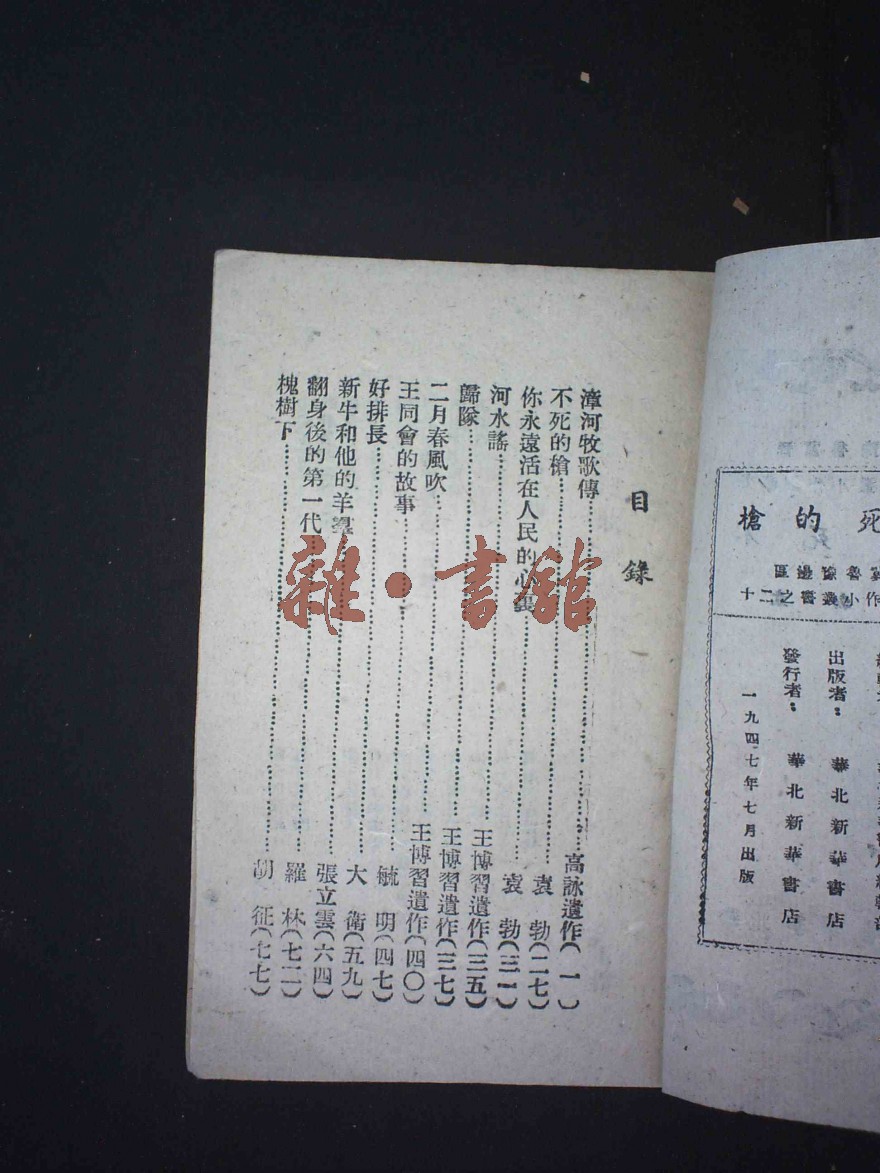 死的槍
魯豫邊區
作小叢書之二十
出版者：華北新華書店
發行者：華北新華書店
一九四七年七月出版
目錄
漳河牧歌傳……高詠遺作（一）
不死的槍……袁勃（二七）
你永遠活在人民的心裏……袁勃（三一）
河水謠……王博習遺作（三五）
歸隊……王博習遺作（三七）
二月春風吹……王博習遺作（四〇）
王同會的故事……毓明（四七）
好排長……大衛（五九）
新牛和他的羊羣……張立雲（六四）
翻身後的第一代……羅林（七二）
槐樹下……胡征（七七）
雜·書館